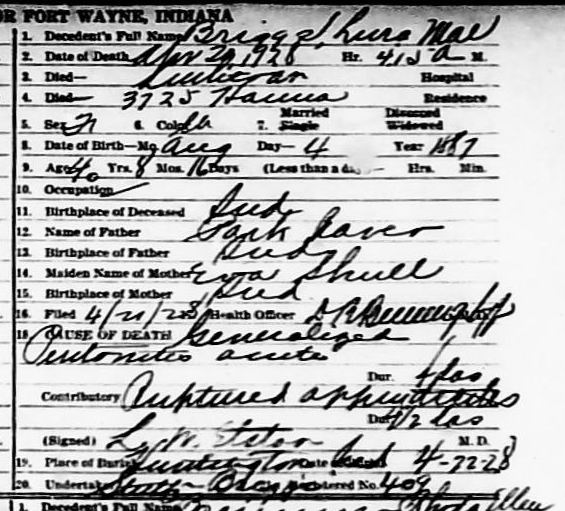 OR FORT WAYNE, INDIANA
1. Decedent's Full Name Briggs, Lura Mae
2. Date of Death Apr 20, 1928 Hr. 415 A M.
3. Died— Lutheran Hospital
4. Died— 3725 Hanna Residence
5. Sex 6. Col 7. Married Single Divorced Widowed
8. Date of Birth—Mo. Aug Day— 4 Year 1887
9. Age 40 Yrs. 8 Mos. 16 Days (Less than a day— Hrs. Min.
10. Occupation
11. Birthplace of Deceased Ind
12. Name of Father
13. Birthplace of Father Ind
14. Maiden Name of Mother Eva Shull
15. Birthplace of Mother Ind
16. Filed 4/21/28 Health Officer
18. CAUSE OF DEATH Generalized
Peritonitis acute
Dur. 4 das
Contributory Ruptured appendicitis
Dur. 4½ das
(Signed) L. W. M. D.
19. Place of Burial Huntington Ind 4-22-28
20. Undertaker Registered No. 409
1. Decedent's Full Name